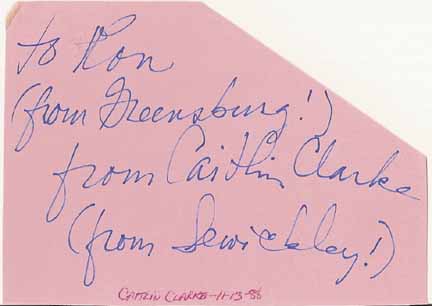 to Ron
(from Greensburg!)
from Caitlin Clarke
(from Sewickley!)
CAITLIN CLARKE-11-13-86